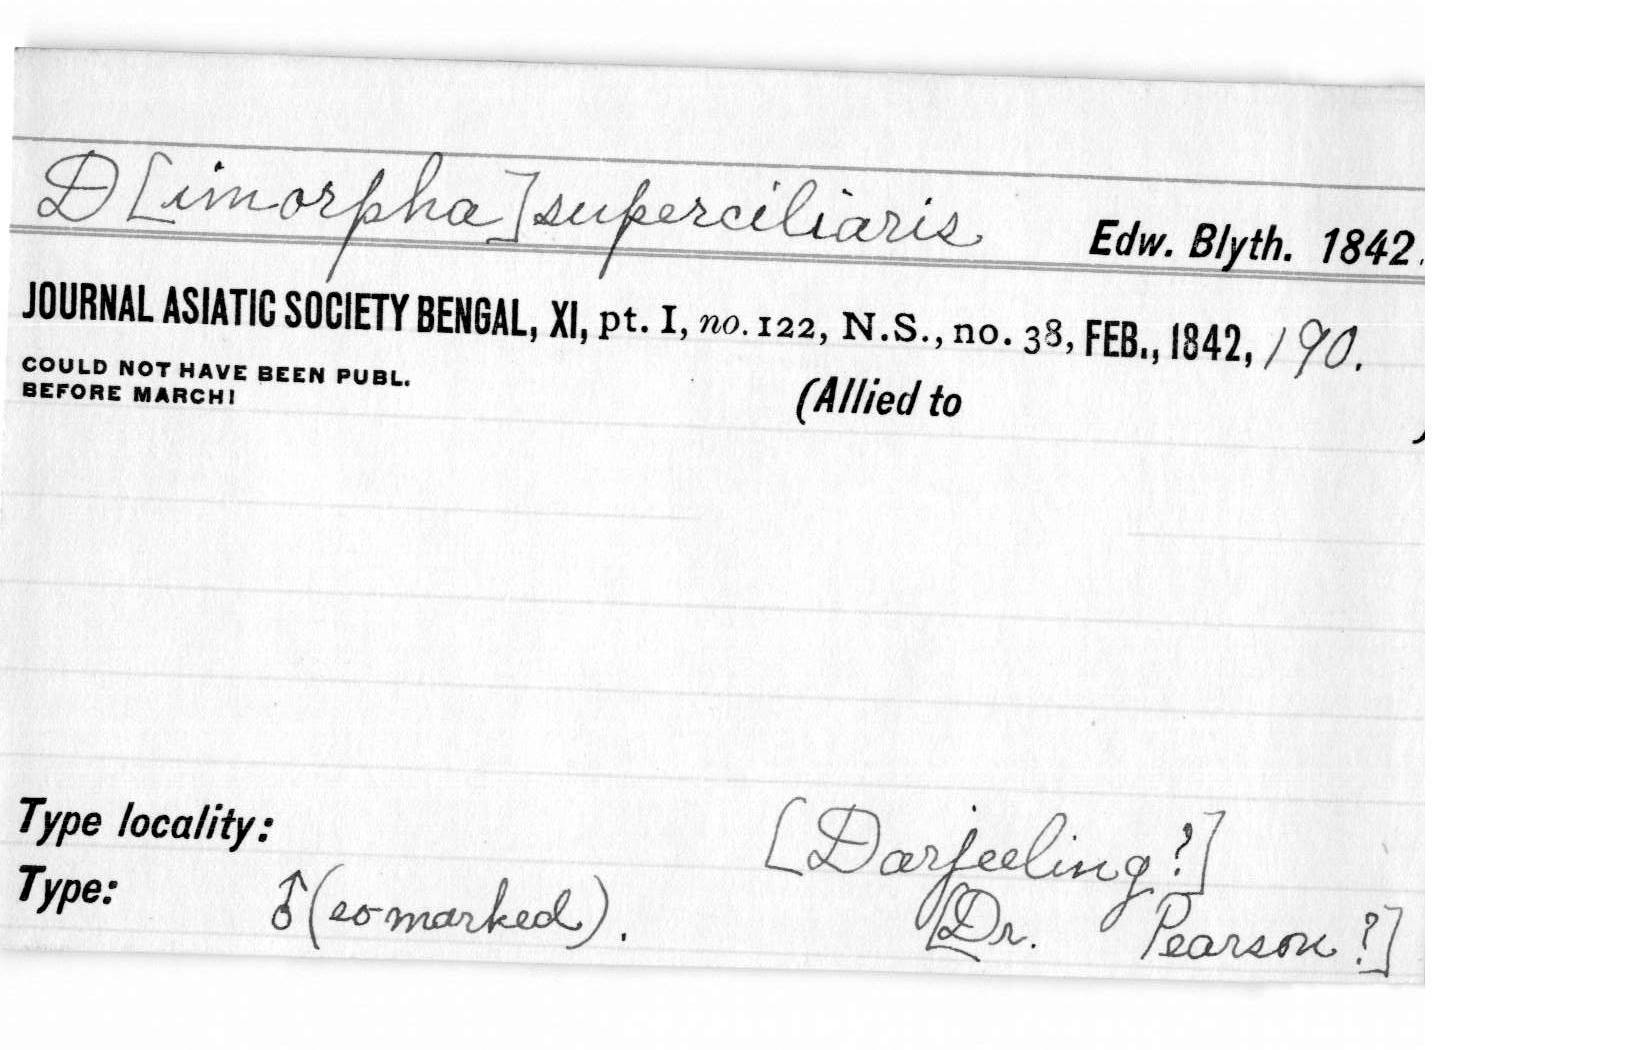 D[imorpha] superciliaris Edw. Blyth. 1842.
JOURNAL ASIATIC SOCIETY BENGAL, XI, pt. I, no. 122, N.S., no. 38, FEB., 1842, 190.
COULD NOT HAVE BEEN PUBL.
BEFORE MARCH!
(Allied to )
Type locality: [Darjeeling?]
Type: ♂ (so marked). [Dr. Pearson?]